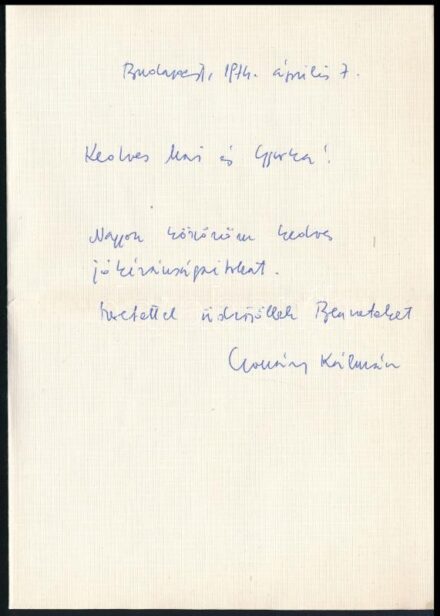 Budapest, 1974. április 7.
Kedves és Gyurka!
Nagyon köszönöm kedves
jókívánságaitokat.
Szeretettel üdvözöllek Benneteket
Csomány Kálmán